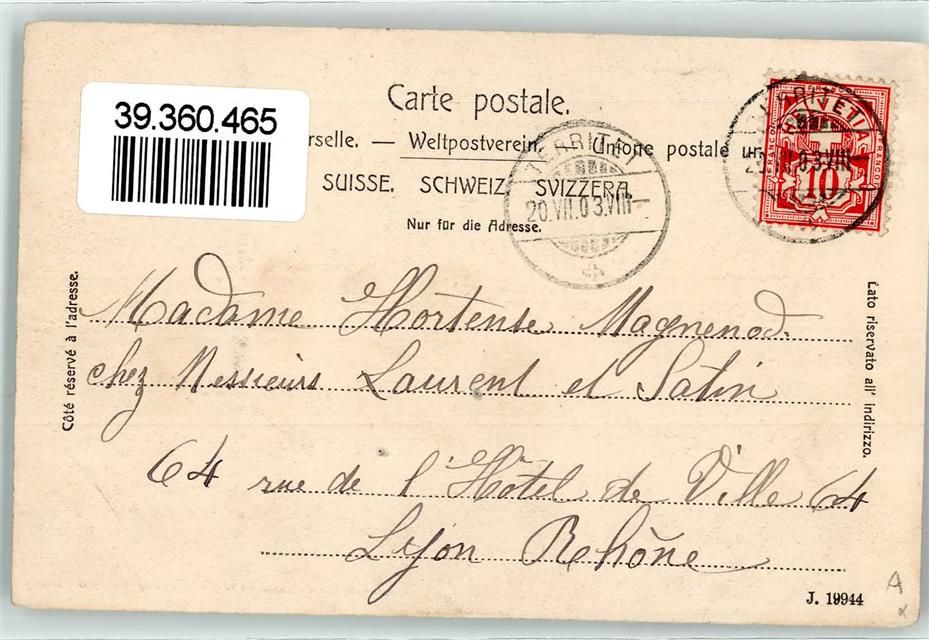 39.360.465
Carte postale.
rselle. — Weltpostverein. Unione postale un
SUISSE. SCHWEIZ. SVIZZERA.
Nur für die Adresse.
TERRITET
20.VII.03.VIII
HELVETIA
FRANCO
10
Côté réservé à l'adresse.
Lato riservato all' indirizzo.
Madame Hortense Magnenod.
chez Messieurs Laurent et Satin
64 rue de l'Hôtel de Ville 64
Lyon Rhône
J. 19944
A